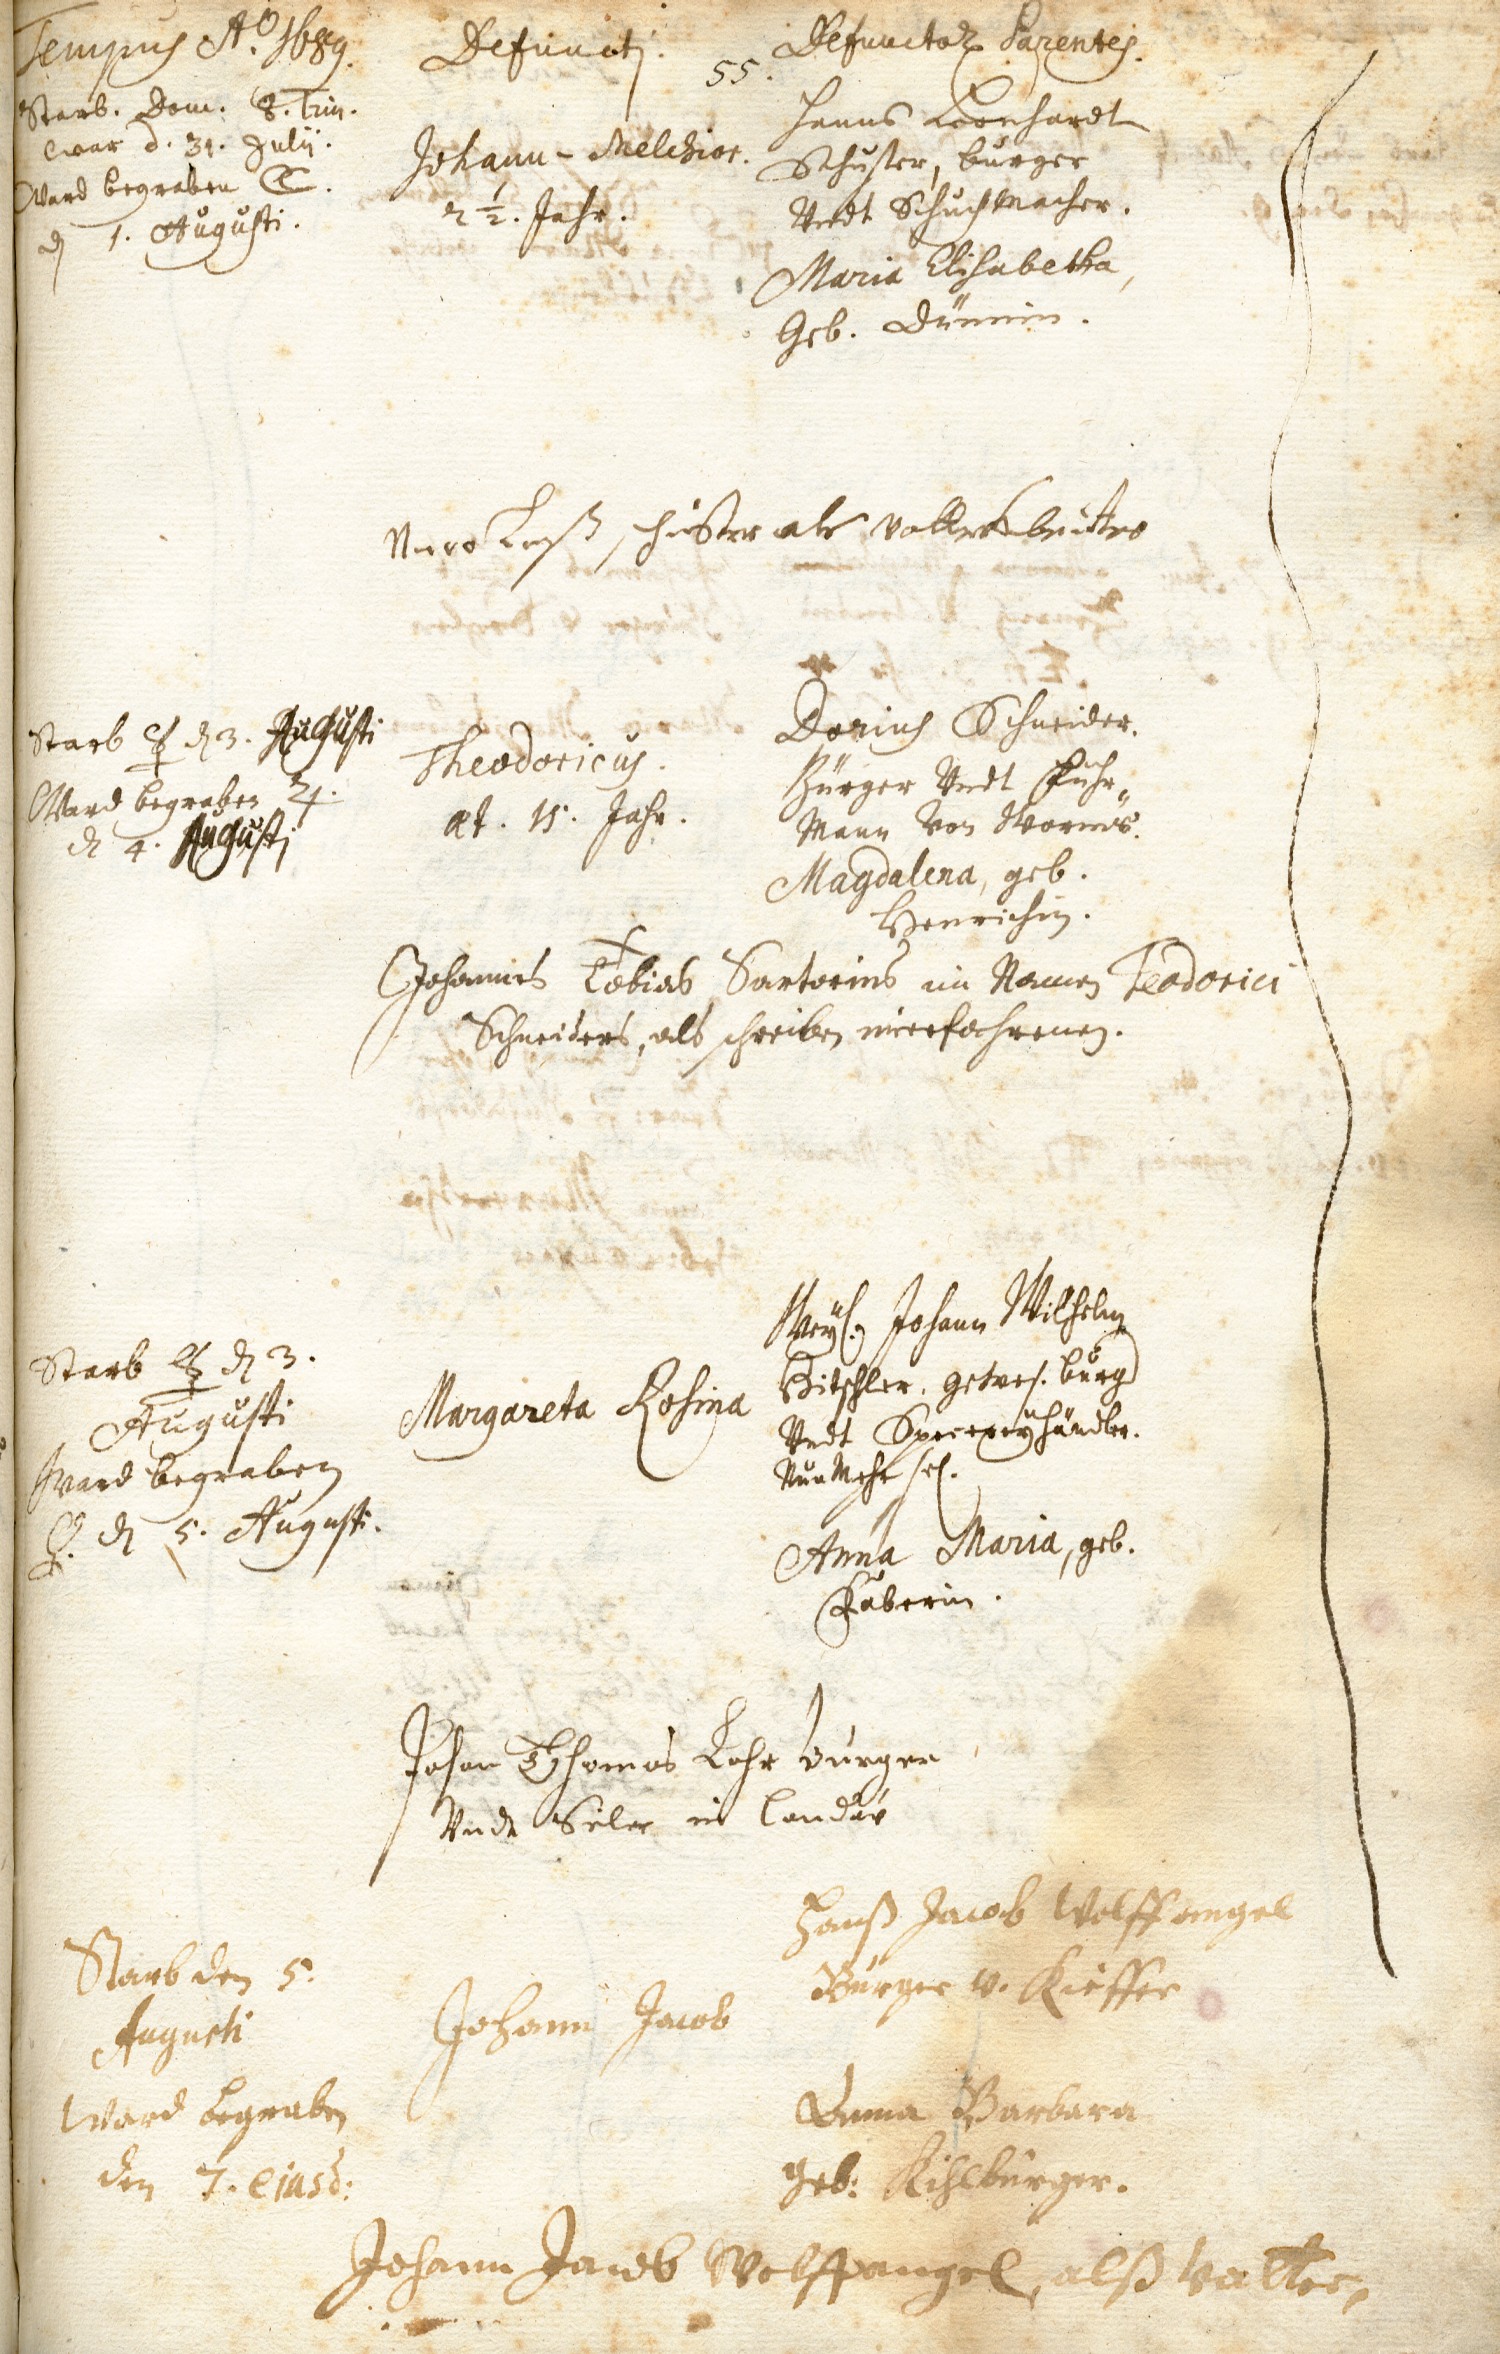 Tempus Aº. 1689.
Defuncti.
55.
Defunctor. Parentes.
Starb. Dom. 8. Trin.
war d. 31. Julij.
Ward begraben ☾.
d 1. Augusti.
Johann-Melchior.
2 1/2. Jahr.
Hanns Leonhardt
Schuster, burger
Undt Schuchmacher.
Maria Elisabetha,
Geb. Dümmin.
als
Starb ☿ d 3. Augusti
Ward begraben ♃.
d 4. Augusti
Theodoricus.
æt. 15. Jahr.
Schneider.
Bürger Undt Fuhr„
Mann von Worms.
Magdalena, geb.
Henrichin.
Johannes Tobias Sartorius im Namen Teodorici
Schneiders, als schreiben unerfahrenen.
Starb ☿ d 3.
Augusti
Ward begraben
♀. d 5. Augusti.
Margareta Rosina
Weyl. Johann Wilhelm
Hitschler. gewes. burg
Undt Specereyhändler.
Nun Mehr sel.
Anna Maria, geb.
Faberin.
Johan Thomas Lohr burger
Undt Seiler in Landau
Starb den 5.
Augusti
Ward begraben
den 7. ejusd:
Johann Jacob
Hanß Jacob Wolffangel
Bürger v. Kieffer
Anna Barbara
geb: Kihlburger.
Johann Jacob Wolffangel, alß Vatter,